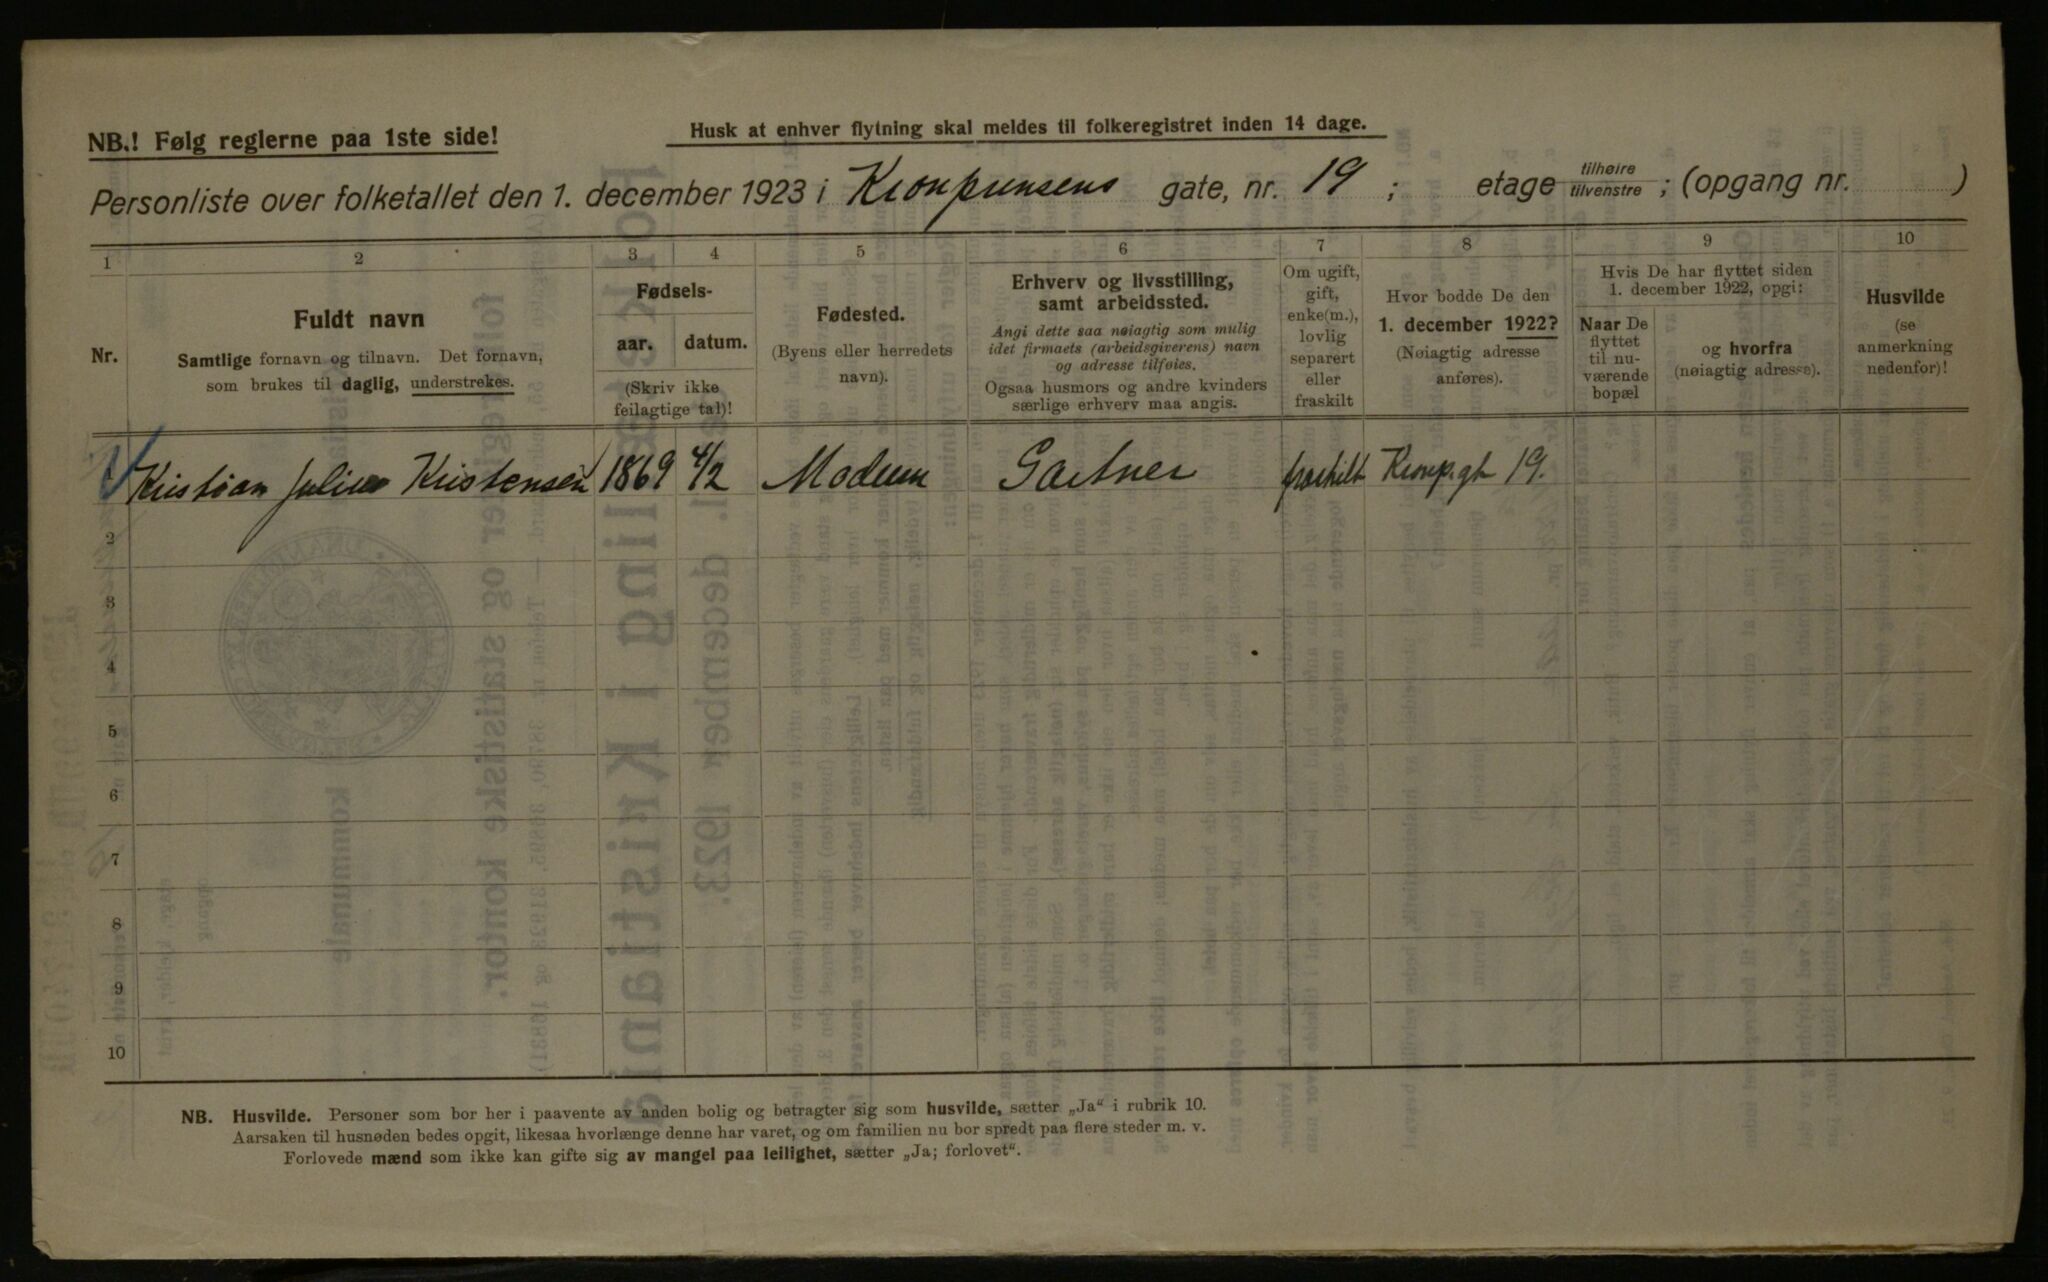 NB.! Følg reglerne paa 1ste side!
Husk at enhver flytning skal meldes til folkeregistret inden 14 dage.
Personliste over folketallet den 1. december 1923 i Kronprinsens gate, nr. 19 ; etage tilhøire tilvenstre ; (opgang nr. )
1 2 3 4 5 6 7 8 9 10
Nr.
Fuldt navn
Samtlige fornavn og tilnavn. Det fornavn,
som brukes til daglig, understrekes.
Fødsels-
aar. datum.
(Skriv ikke
feilagtige tal)!
Fødested.
(Byens eller herredets
navn).
Erhverv og livsstilling,
samt arbeidssted.
Angi dette saa nøiagtig som mulig
idet firmaets (arbeidsgiverens) navn
og adresse tilføies.
Ogsaa husmors og andre kvinders
særlige erhverv maa angis.
Om ugift,
gift,
enke(m.),
lovlig
separert
eller
fraskilt
Hvor bodde De den
1. december 1922?
(Nøiagtig adresse
anføres).
Hvis De har flyttet siden
1. december 1922, opgi:
Naar De
flyttet
til nu-
værende
bopæl
og hvorfra
(nøiagtig adresse).
Husvilde
(se
anmerkning
nedenfor)!
1 Kristian Julius Kristensen 1869 4/2 Modum Gartner fraskilt Kronp.gt 19.
2
3
4
5
6
7
8
9
10
NB. Husvilde. Personer som bor her i paavente av anden bolig og betragter sig som husvilde, sætter „Ja" i rubrik 10.
Aarsaken til husnøden bedes opgit, likesaa hvorlænge denne har varet, og om familien nu bor spredt paa flere steder m. v.
Forlovede mænd som ikke kan gifte sig av mangel paa leilighet, sætter „Ja; forlovet".